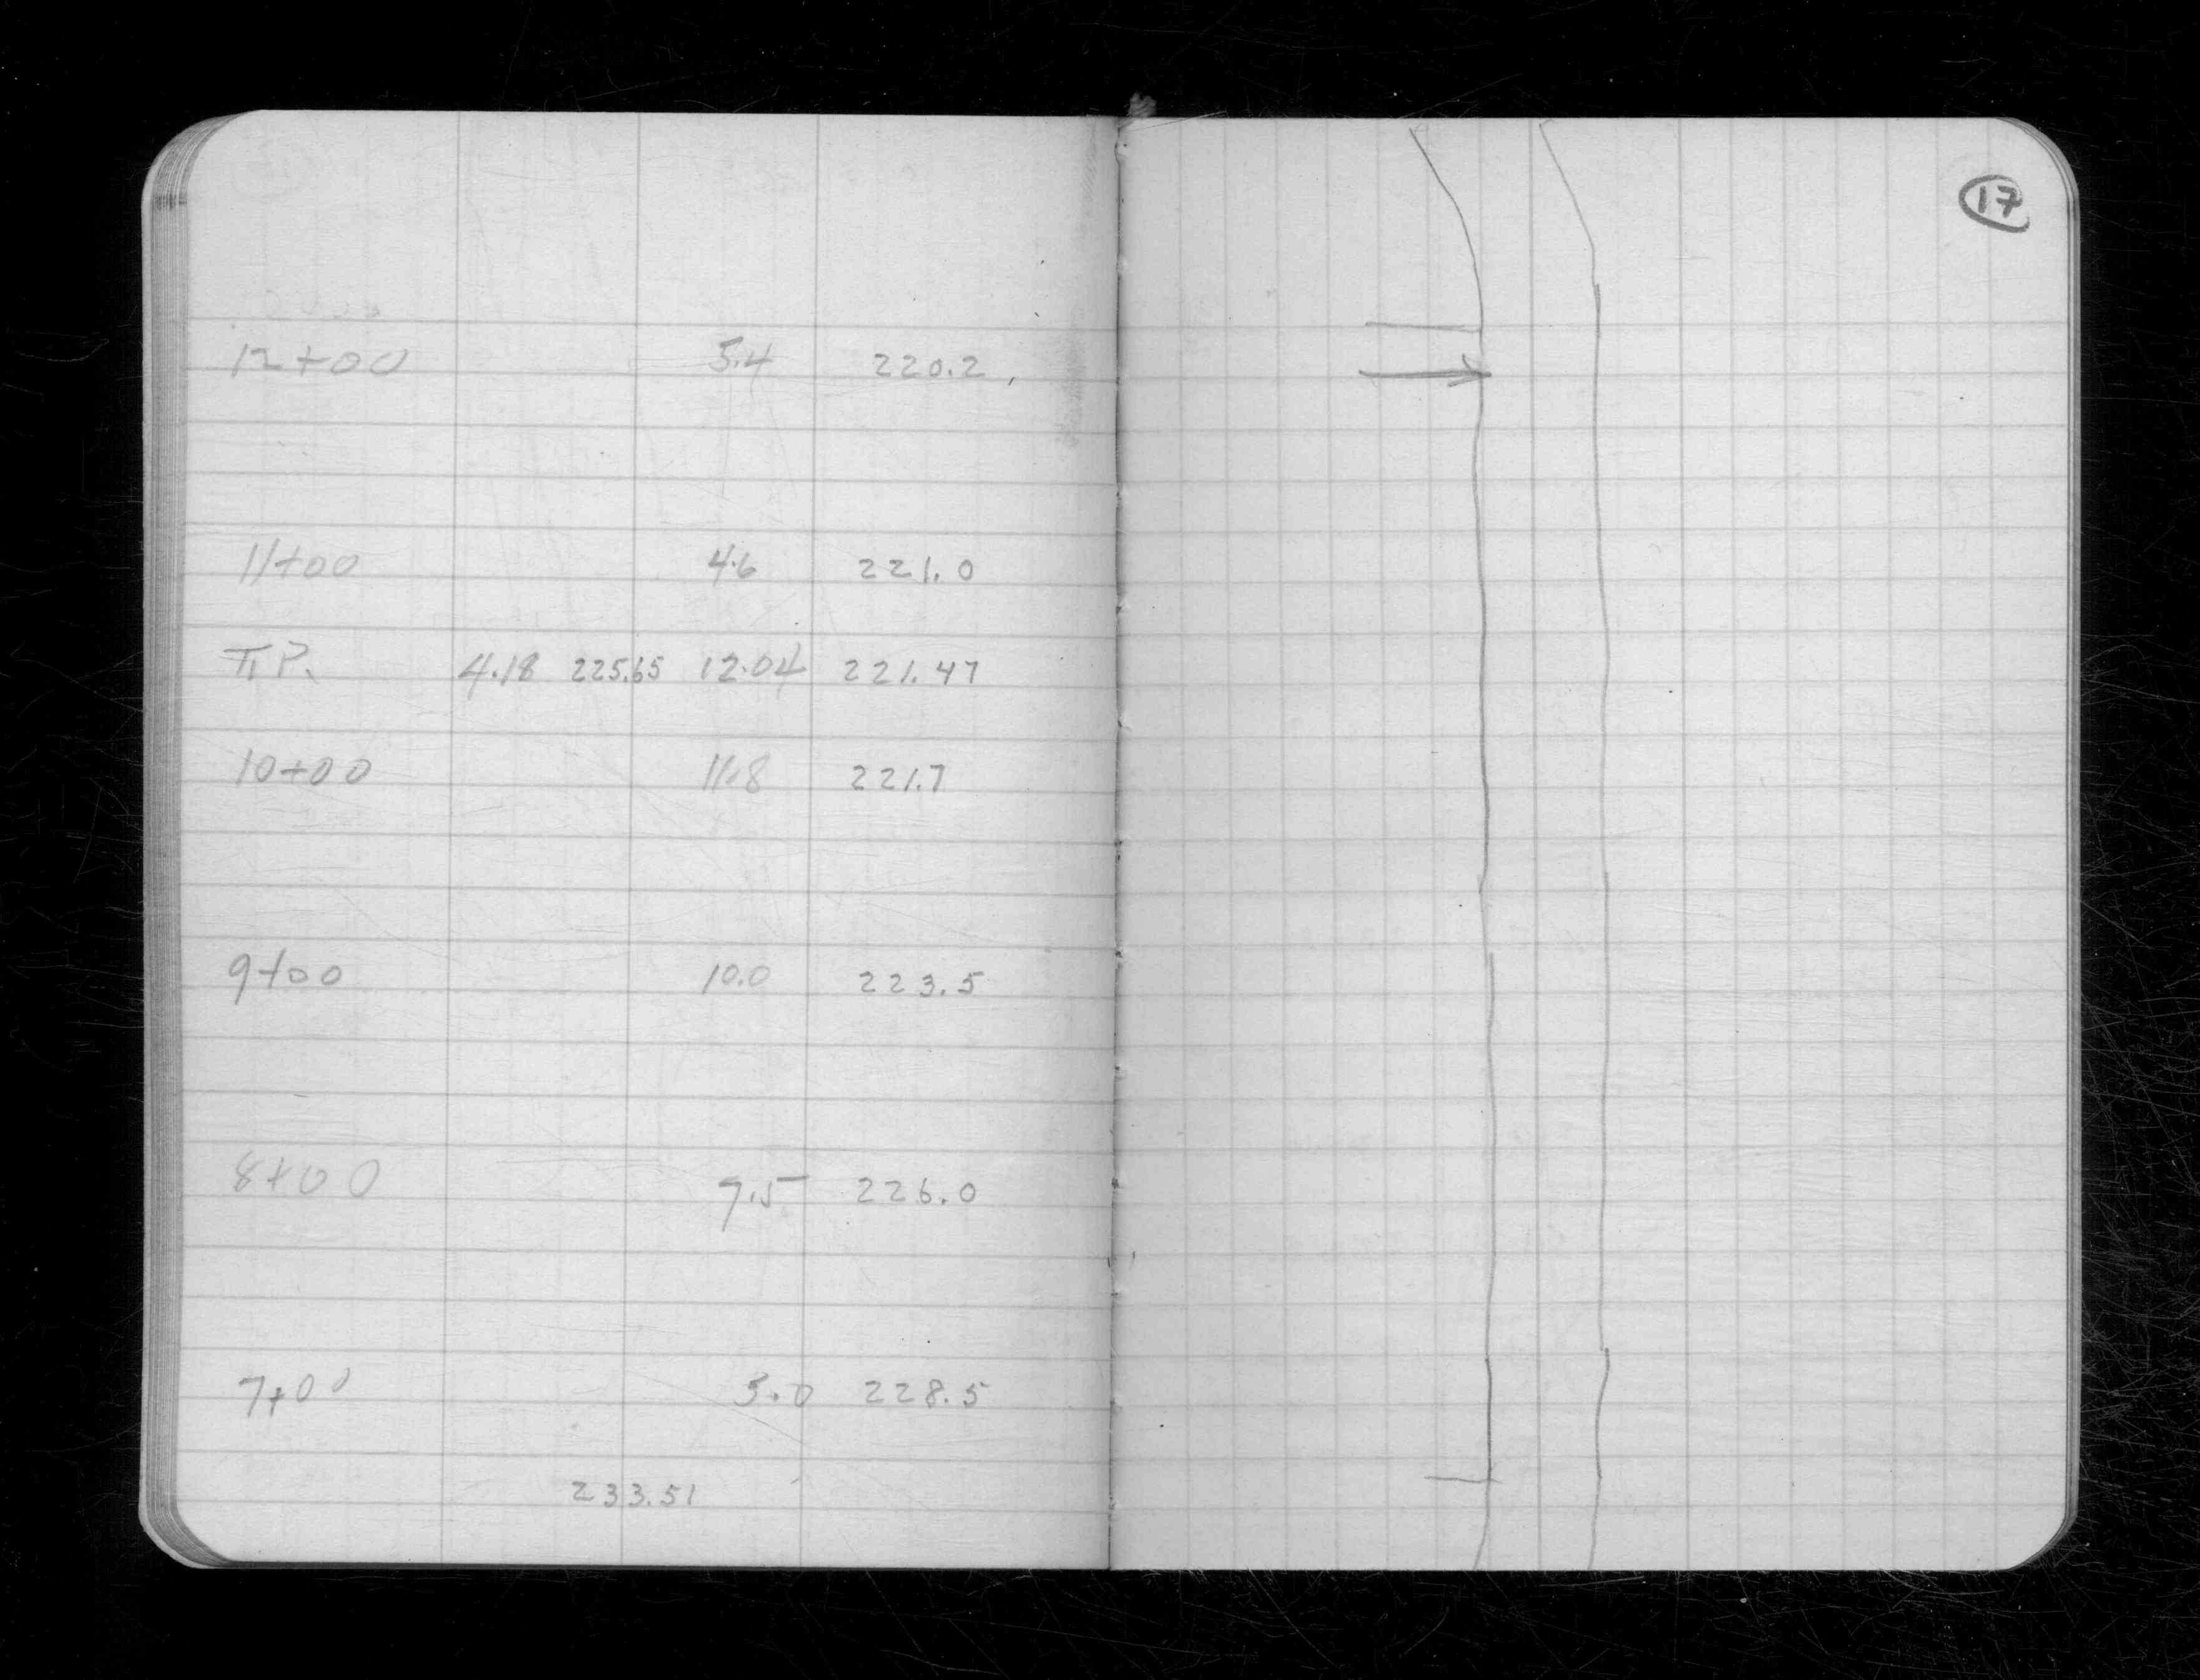 12+00 5.4 220.2
11+00 4.6 221.0
T.P. 4.18 225.65 12.04 221.47
10+00 11.8 221.7
9+00 10.0 223.5
8+00 7.5 226.0
7+00 5.0 228.5
233.51
17